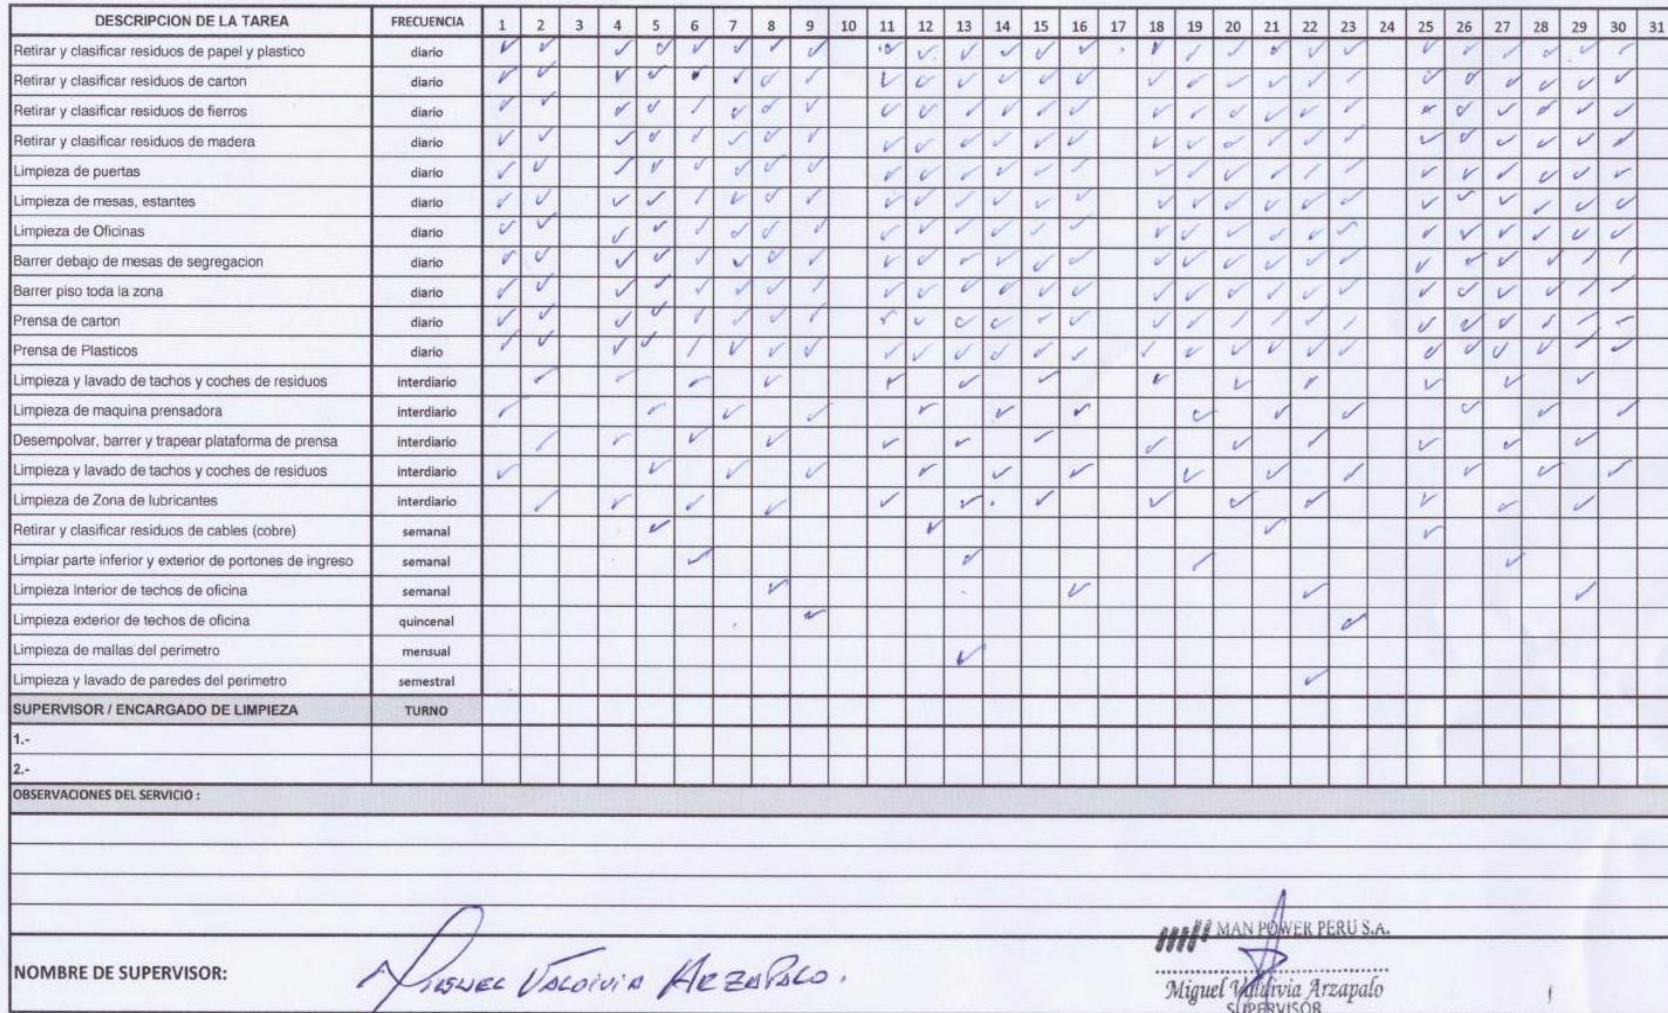 DESCRIPCION DE LA TAREA FRECUENCIA 1 2 3 4 5 6 7 8 9 10 11 12 13 14 15 16 17 18 19 20 21 22 23 24 25 26 27 28 29 30 31
Retirar y clasificar residuos de papel y plastico diario
Retirar y clasificar residuos de carton diario
Retirar y clasificar residuos de fierros diario
Retirar y clasificar residuos de madera diario
Limpieza de puertas diario
Limpieza de mesas, estantes diario
Limpieza de Oficinas diario
Barrer debajo de mesas de segregacion diario
Barrer piso toda la zona diario
Prensa de carton diario
Prensa de Plasticos diario
Limpieza y lavado de tachos y coches de residuos interdiario
Limpieza de maquina prensadora interdiario
Desempolvar, barrer y trapear plataforma de prensa interdiario
Limpieza y lavado de tachos y coches de residuos interdiario
Limpieza de Zona de lubricantes interdiario
Retirar y clasificar residuos de cables (cobre) semanal
Limpiar parte inferior y exterior de portones de ingreso semanal
Limpieza Interior de techos de oficina semanal
Limpieza exterior de techos de oficina quincenal
Limpieza de mallas del perimetro mensual
Limpieza y lavado de paredes del perimetro semestral
SUPERVISOR / ENCARGADO DE LIMPIEZA TURNO
1.-
2.-
OBSERVACIONES DEL SERVICIO :
MAN POWER PERU S.A.
NOMBRE DE SUPERVISOR: Miguel Valdivia Arzapalo.
Miguel Valdivia Arzapalo
SUPERVISOR